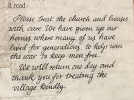 It read:
Please treat the church and houses
with care. We have given up our
homes where many of us have
lived for generations to help win
the war to keep men free.
We will return one day and
thank you for treating the
village kindly.